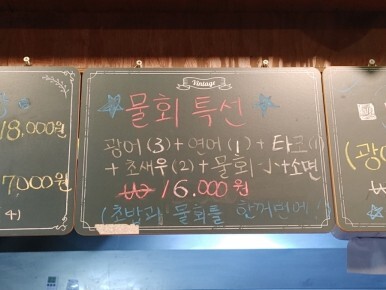 Vintage
물회 특선
광어 (3) + 연어 (1) + 타코 (1)
+ 초새우 (2) + 물회 小 + 소면
₩ 16.000원
(초밥과 물회를 한꺼번에!
18,000원
7000원
4)
(광